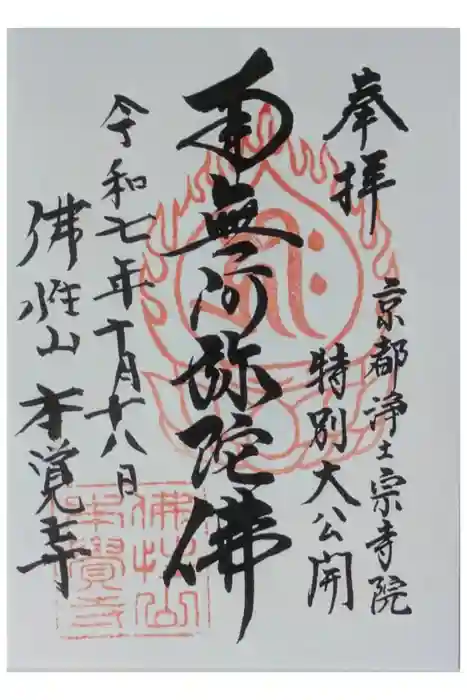 奉拝
京都浄土宗寺院
特別大公開
南無阿弥陀佛
令和七年十月十八日
佛性山 本覚寺
佛性山
本覺寺